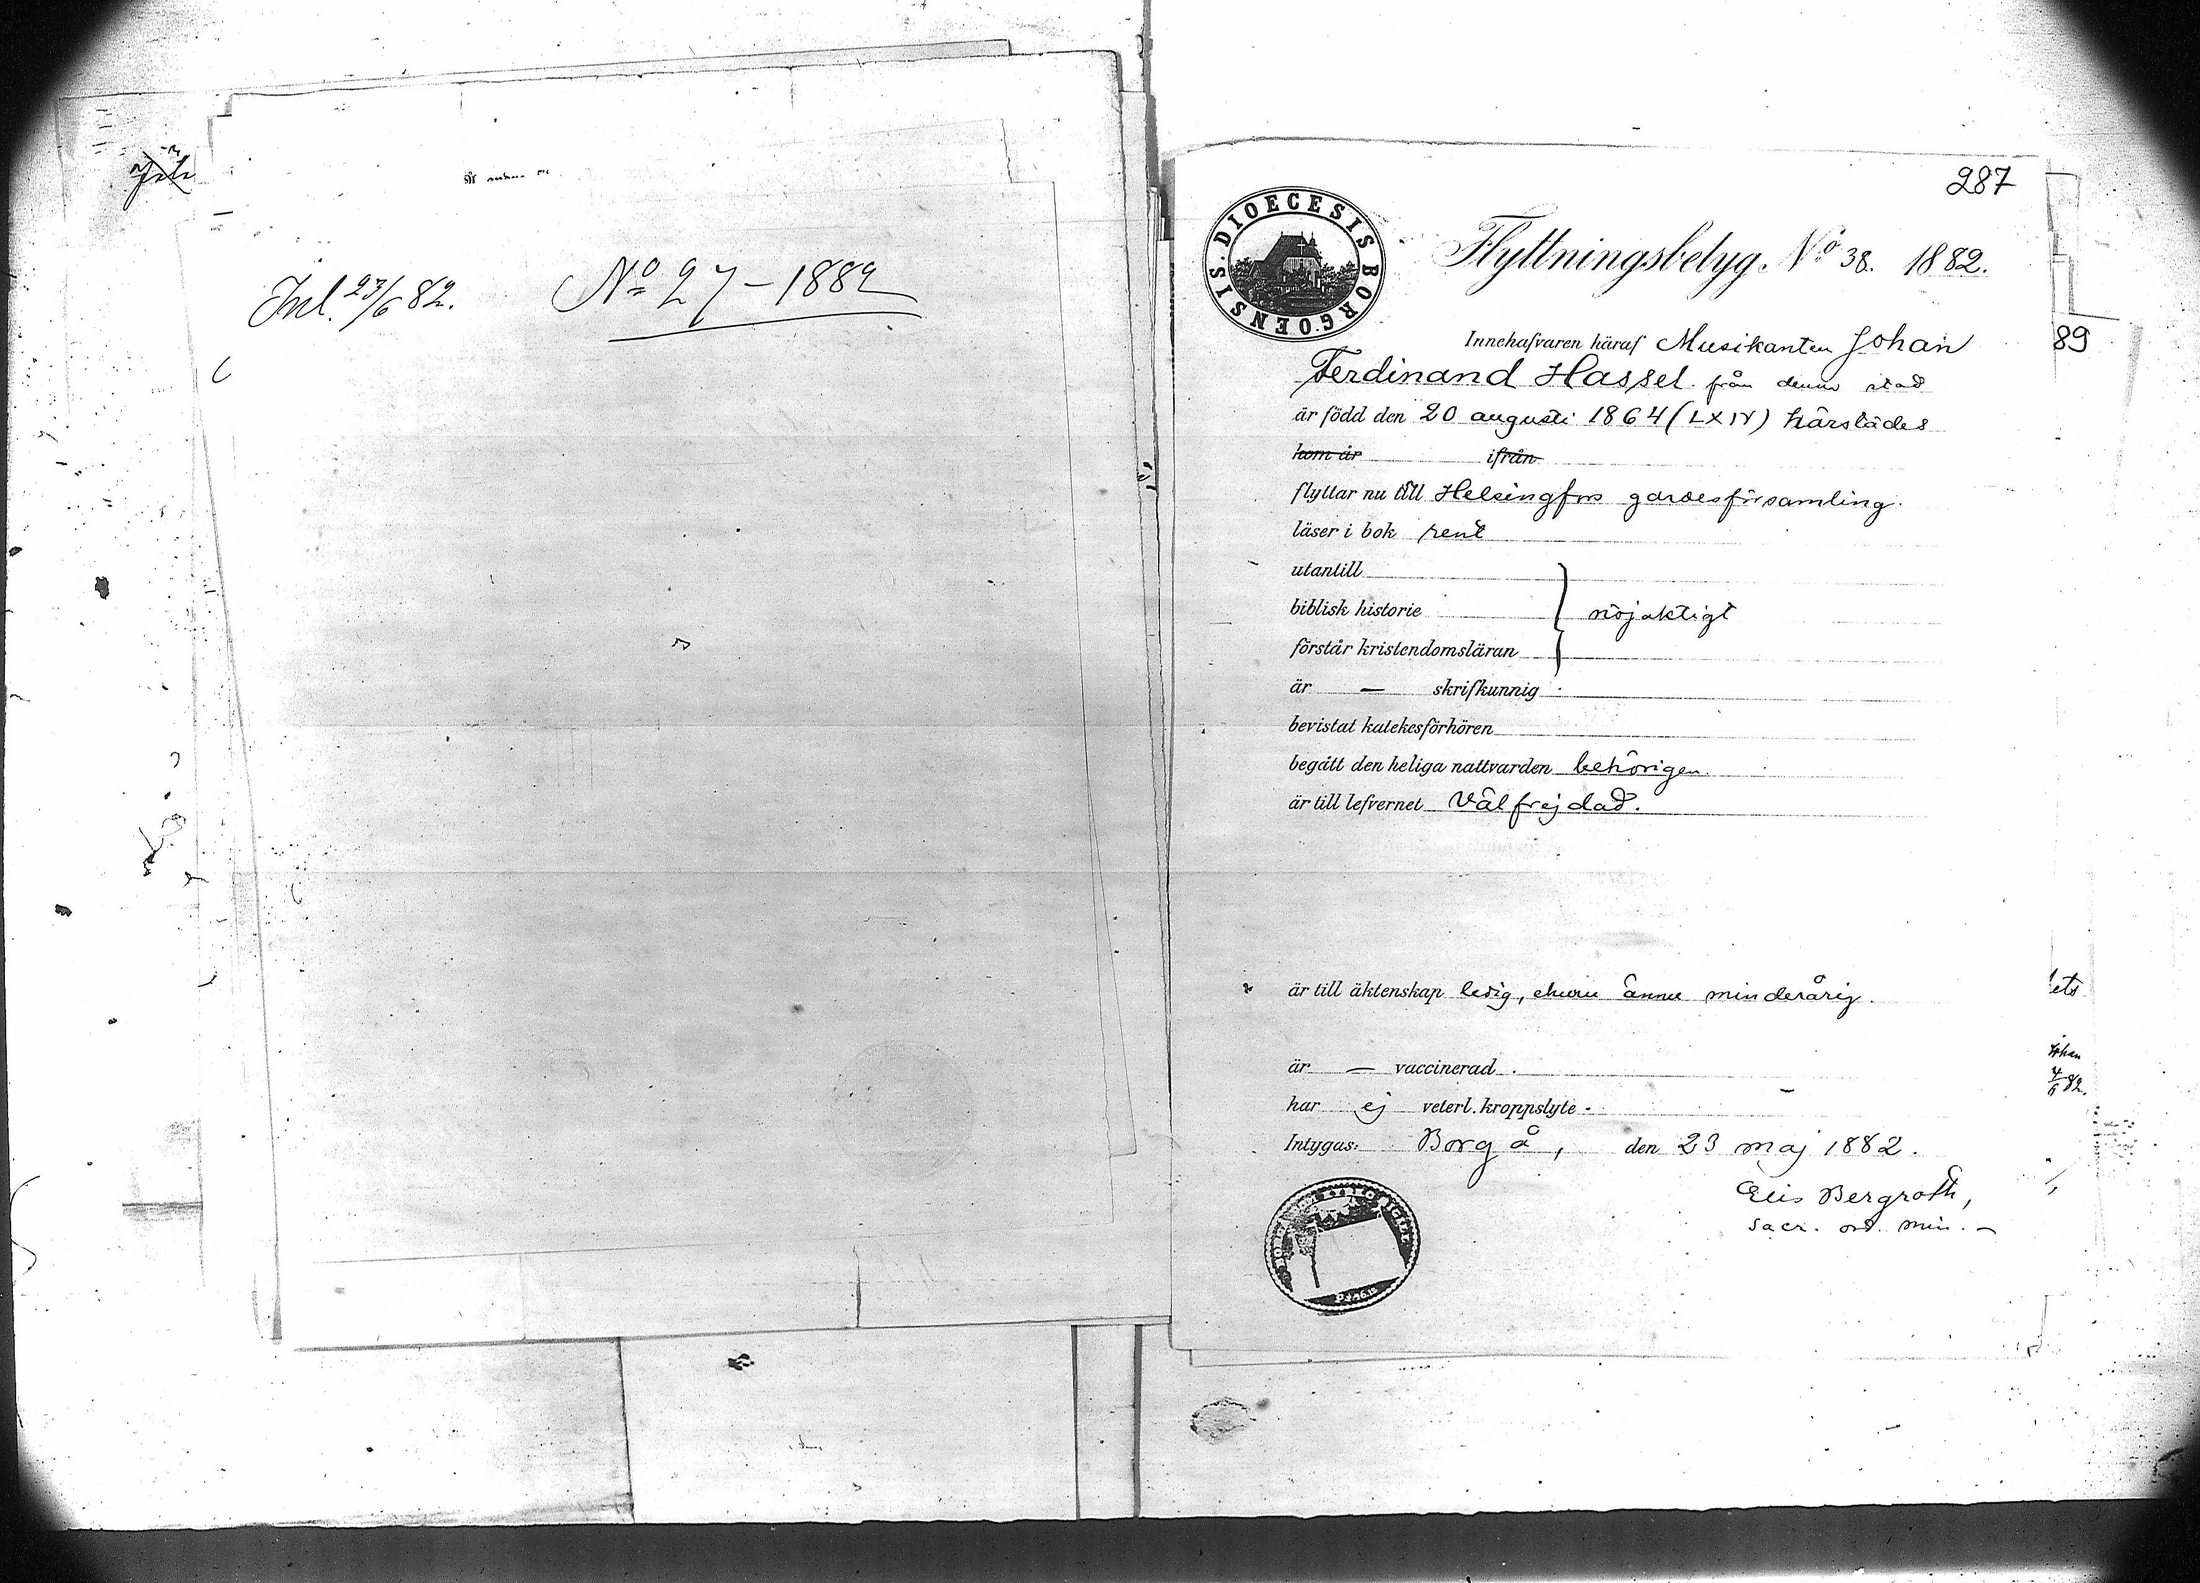 Inl. 23/6 82.
No 27 – 1882
287
DIOECESIS BORGOENSIS.
Flyttningsbetyg No 38. 1882.
Innehafvaren häraf Musikanten Johan
Ferdinand Hassel från denna stad
är född den 20 augusti 1864 (LXIV) härstädes
kom år ifrån
flyttar nu till Helsingfors gardesförsamling.
läser i bok rent
utantill
biblisk historie } nöjaktigt
förstår kristendomsläran
är — skrifkunnig
bevistat katekesförhören
begått den heliga nattvarden behörigen.
är till lefvernet välfrejdad.
är till äktenskap ledig, ehuru ännu minderårig.
är — vaccinerad.
har ej veterl. kroppslyte.
Intygas: Borgå, den 23 maj 1882.
Elis Bergroth,
sacr. ord. min. —
89
ets
4/6 82.